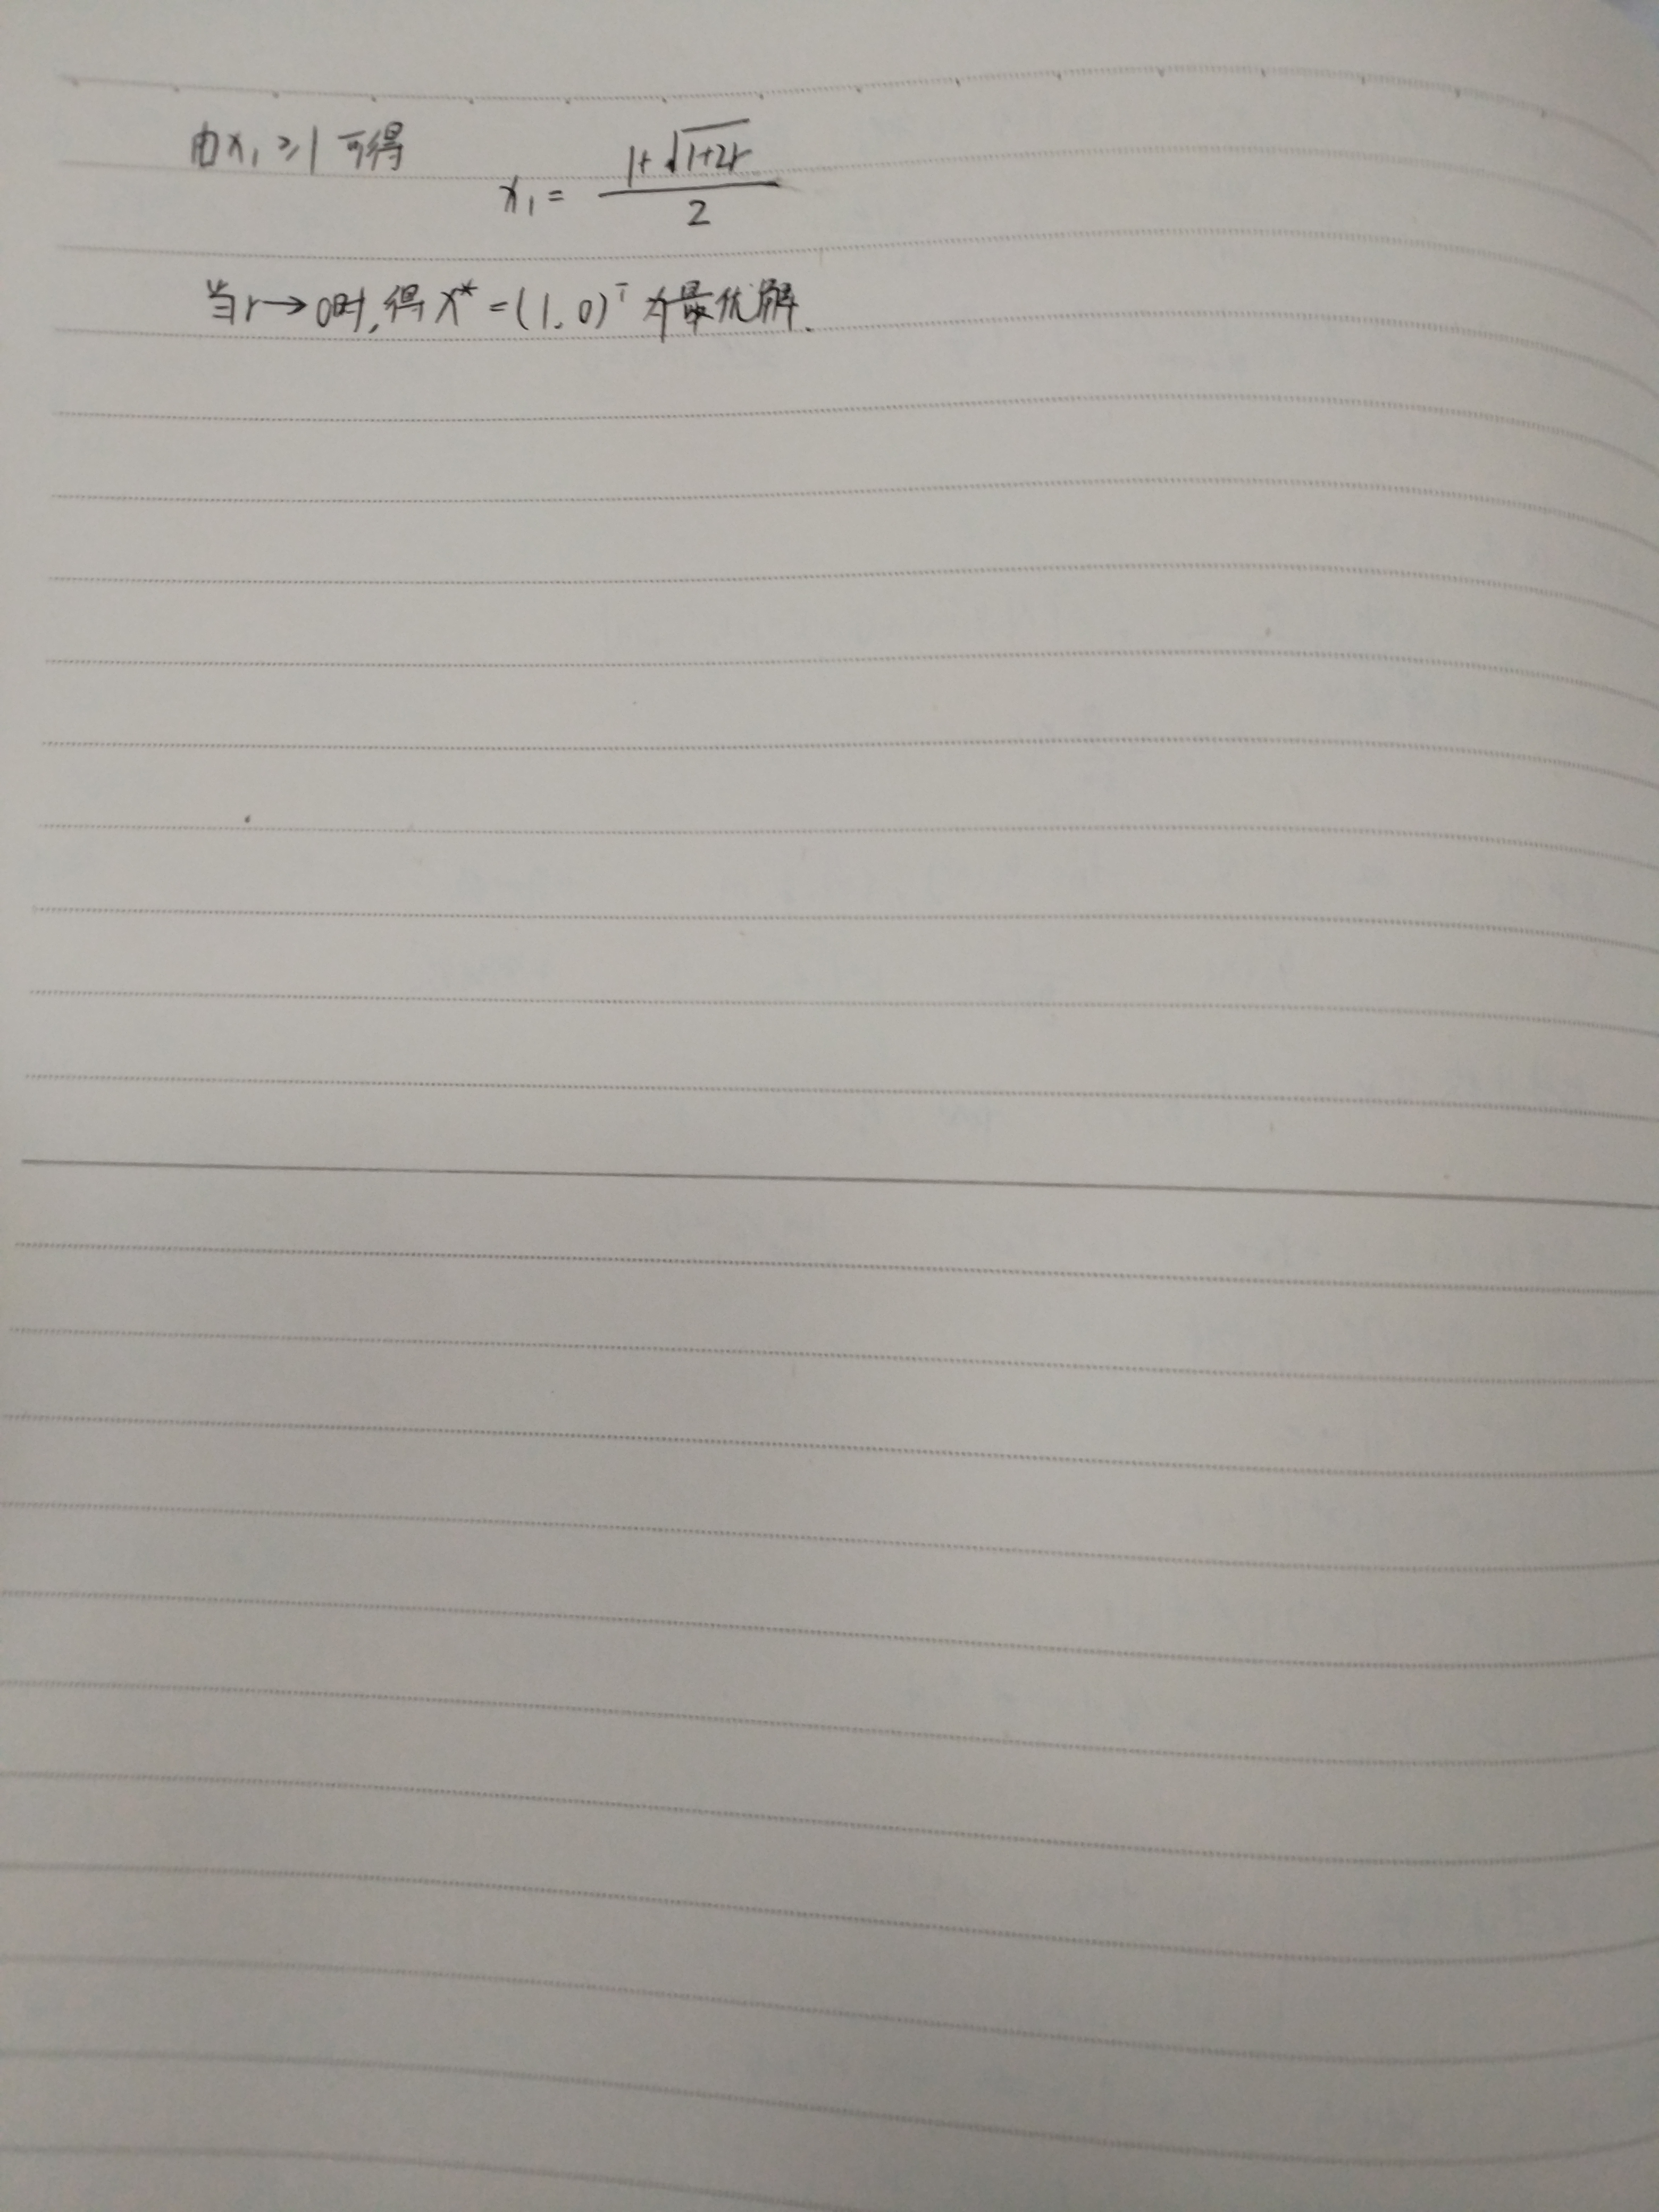 由x₁≥1可得
x₁ = (1+√(1+2r))/2
当r→0时,得x* = (1,0)ᵀ为最优解.